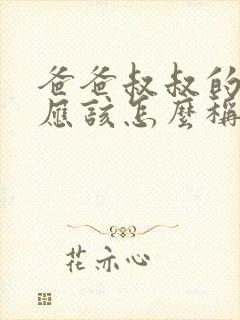 爸爸叔叔的
應該怎麼稱
花亦心